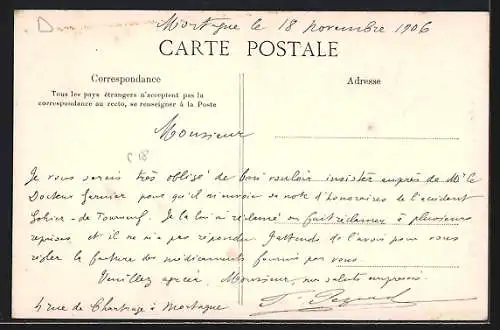 Mortagne le 18 novembre 1906
CARTE POSTALE
Correspondance
Tous les pays étrangers n'acceptent pas la
correspondance au recto, se renseigner à la Poste
Adresse
Monsieur
Je vous serais très obligé de bien vouloir insister auprès de Mr le
Docteur pour qu'il m'envoie sa note d'honoraires de l'accident
de Je la lui ai réclamé ou fait réclamer à plusieurs
reprises et il ne m'a pas répondu J'attends de l'avoir pour vous
régler la facture des médicaments fournis par vous
Veuillez agréer, Monsieur, mes saluts empressés.
4 rue de Chartrage à Mortagne